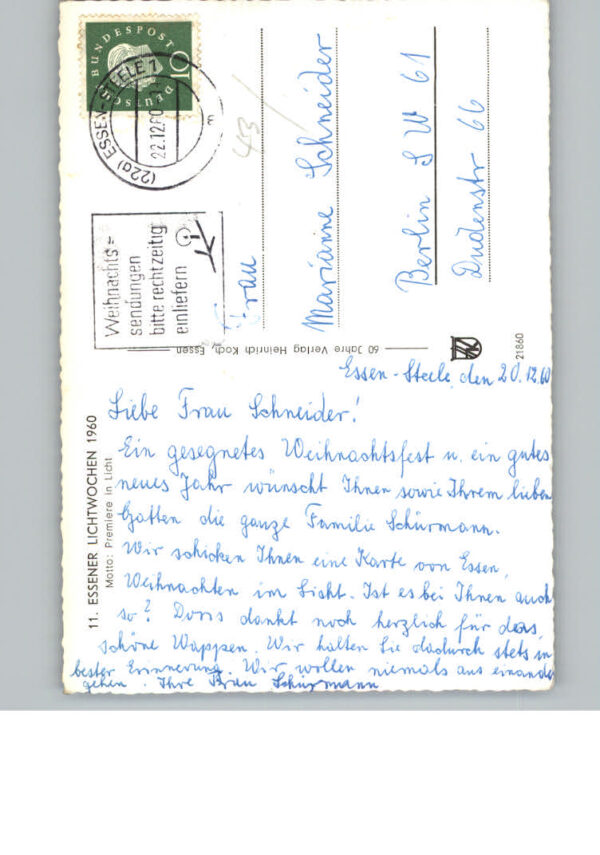 DEUTSCHE BUNDESPOST
10
(22a) ESSEN-STEELE 1
22.12.60
Weihnachts=
sendungen
bitte rechtzeitig
einliefern
43
Frau
Marianne Schneider
Berlin SW 61
Dudenstr 66
60 Jahre Verlag Heinrich Koch, Essen
21860
11. ESSENER LICHTWOCHEN 1960
Motto: Premiere in Licht
Essen-Steele, den 20.12.60
Liebe Frau Schneider!
Ein gesegnetes Weihnachtsfest u. ein gutes
neues Jahr wünscht Ihnen sowie Ihrem lieben
Gatten die ganze Familie Schürmann.
Wir schicken Ihnen eine Karte von Essen,
Weihnachten im Licht. Ist es bei Ihnen auch
so? Doris dankt noch herzlich für das
schöne Wappen. Wir halten Sie dadurch stets in
bester Erinnerung. Wir wollen niemals aus einander
gehen. Ihre Frau Schürmann